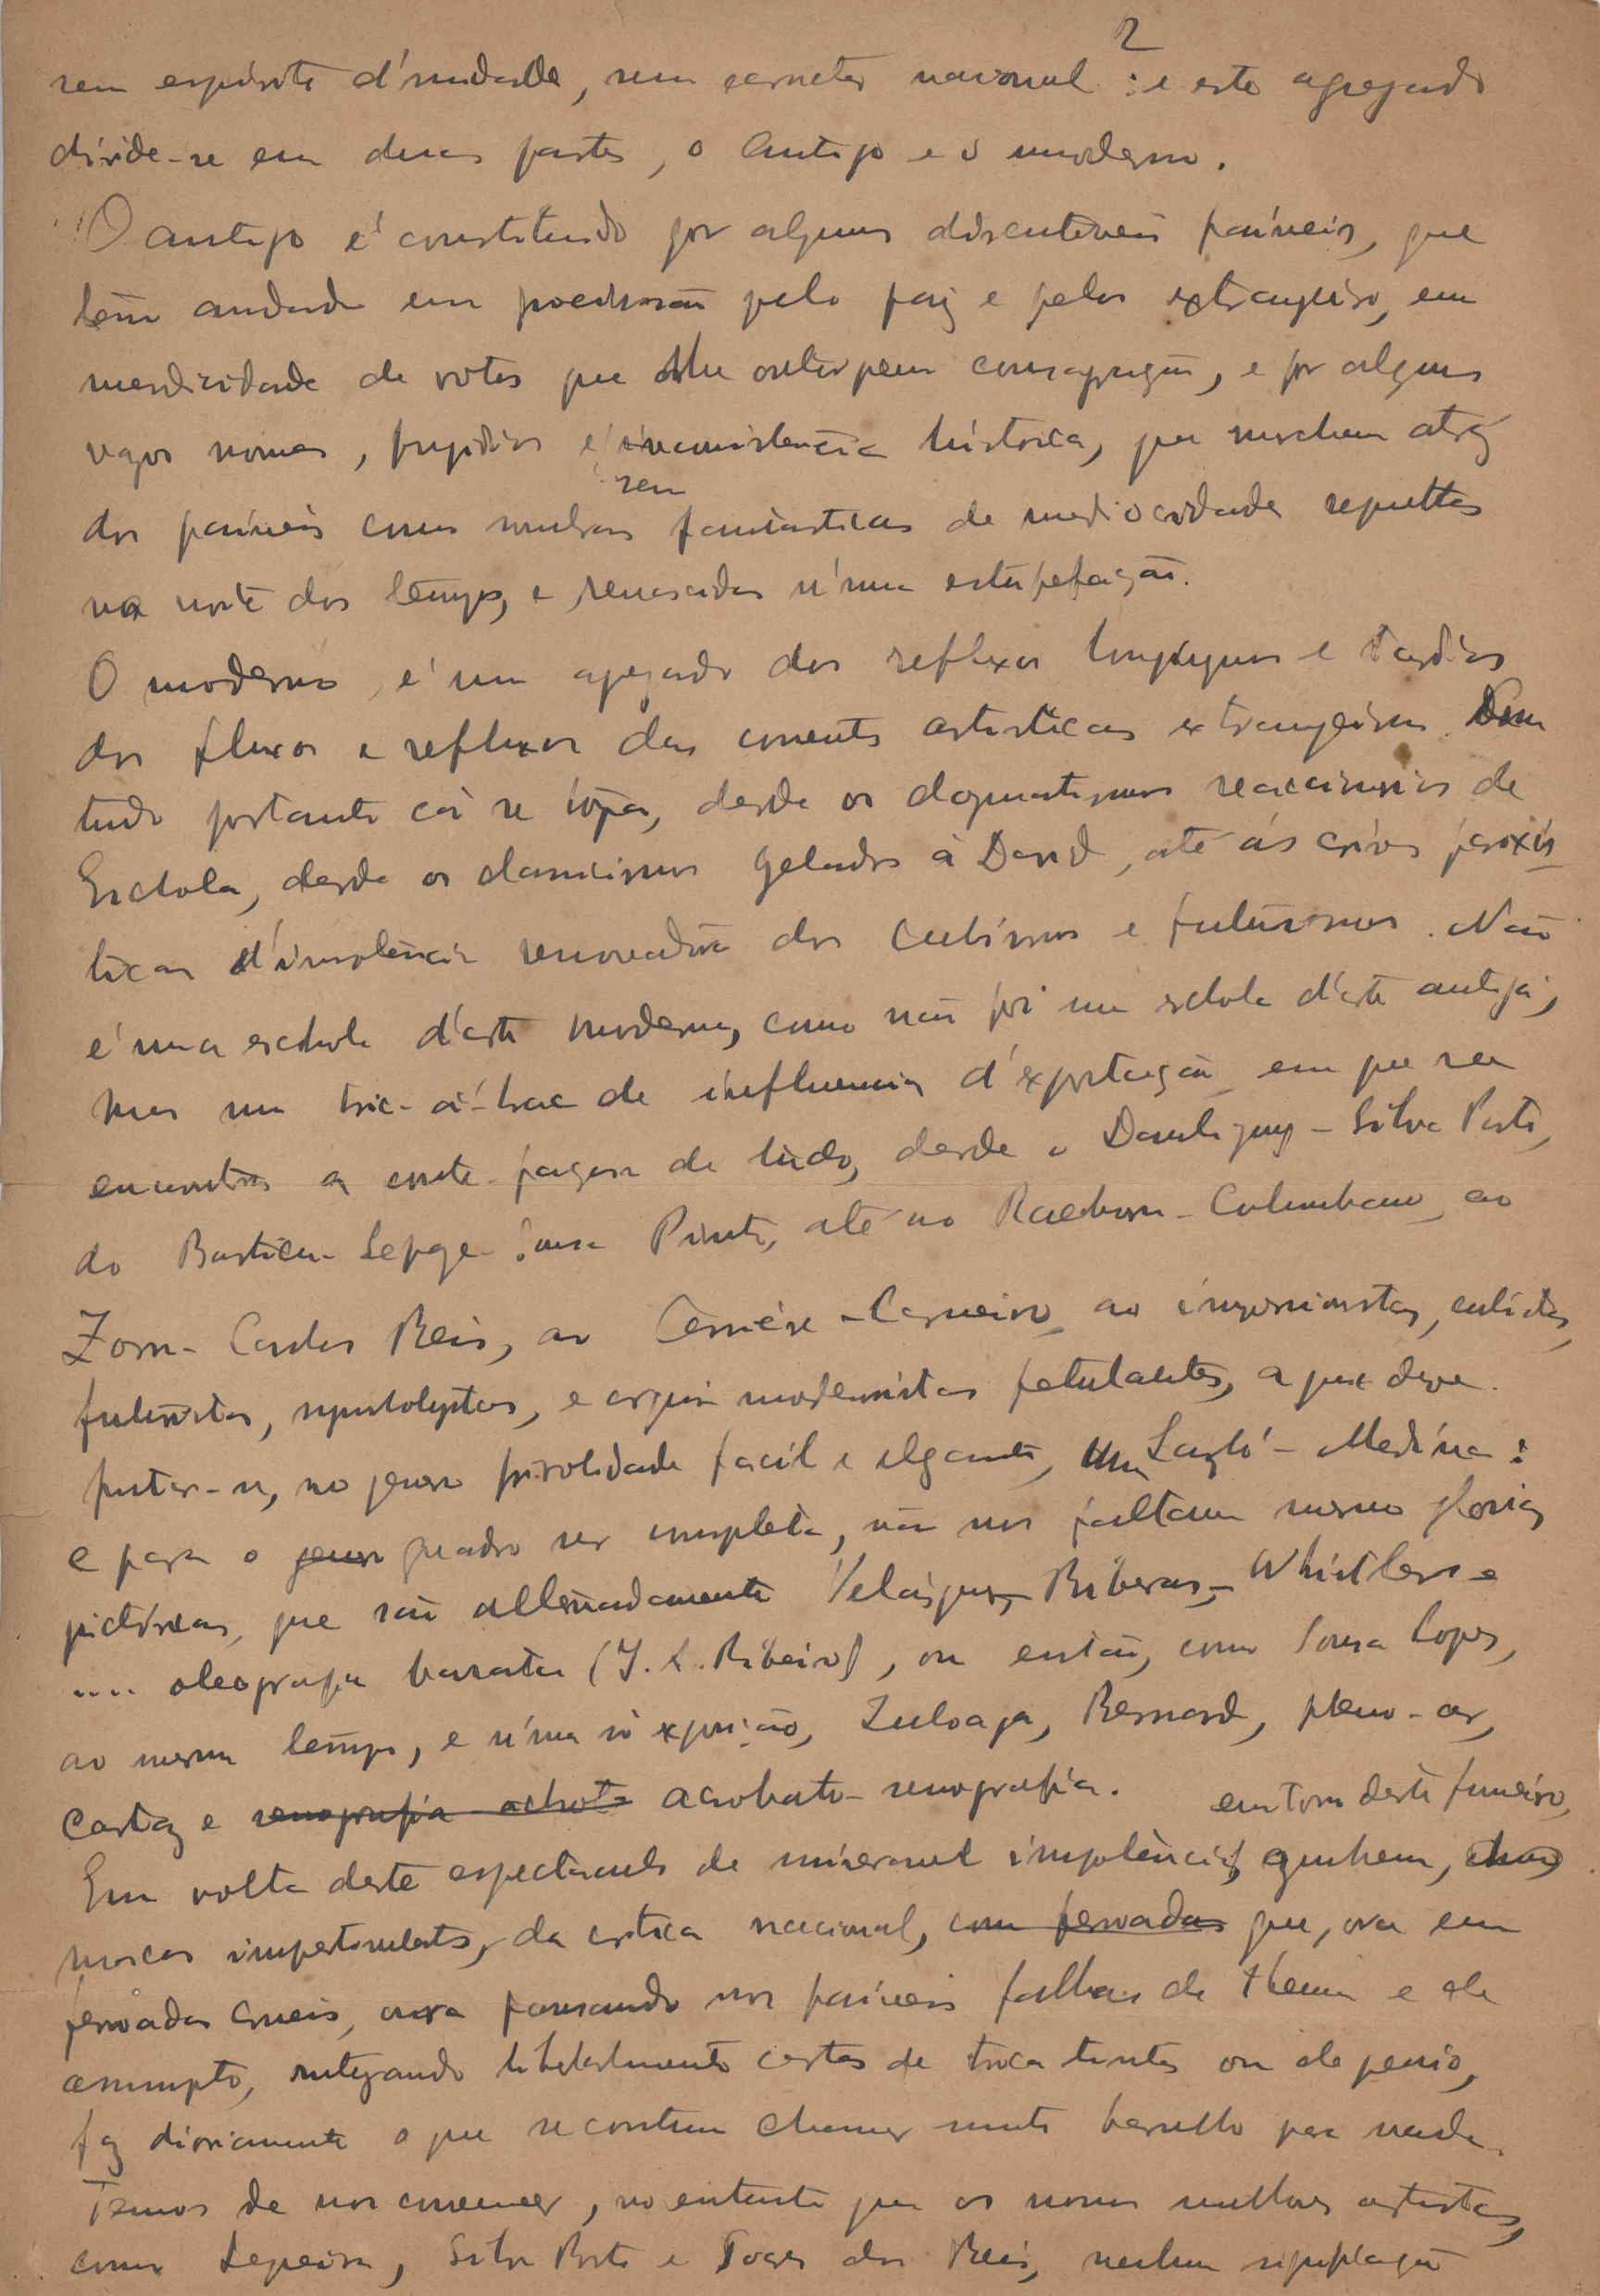 2
sem espirito d'unidade, sem caracter nacional : e este agregado
divide-se em duas partes, o antigo e o moderno.
O antigo é constituido por alguns discutiveis paineis, que
têm andado em procissão pelo paiz e pelo extrangeiro, em
mendicidade de votos que lhe outorguem consagração, e por alguns
vagos nomes, fugidios e inconsistencia historica, que marcham atraz
sem
dos paineis como sombras fantasticas de mediocridades sepultas
na noite dos tempos, e renascidas n'uma estupefação.
O moderno, é um agregado dos reflexos longiquos e tardios
dos fluxos e refluxos das correntes artisticas extrangeiras. De
tudo portanto cá se topa, desde os dogmatismos reaccionarios de
Eschola, desde os classicismos gelados á David, até ás crises paroxis-
ticas d'insolencia renovadora dos cubismos e futurismos. Não
é uma eschola d'arte moderna, como não foi uma eschola d'arte antiga,
mas um tric-á-trac de influencias d'exportação em que se
encontra a contrafação de tudo, desde o Daubigny - Silva Porto,
do Bastien-Lepage - Sousa Pinto, até ao Raeburn - Columbano, ao
Zorn - Carlos Reis, ao Carrière - Carneiro, ao impressionistas, cubistas,
futuristas, e modernistas petulantes, a que deve
juntar-se, no genero frivolidade facil e elegante, um Laszló - Medina :
e para o genero quadro ser completo, não nos faltam mesmo glorias
pictóricas, que são alternadamente Velásquez, Riberas, Whistlers e
.... oleografia barata (J. L. Ribeiro), ou então, como Sousa Lopes,
ao mesmo tempo, e n'uma só exposição, Zuloaga, Besnard, pleno-ar,
cartaz e senografia acrobato-senografia.
em torno deste fumeiro,
Em volta deste espectaculo de miseravel impotencia, zunhem,
moscas impertinentes, da critica nacional, com ferroadas que, ora em
ferroadas crueis, ora pousando nos paineis falhas de thema e de
assumpto, cartas de troca tintas ou de genio,
faz diariamente o que se costuma chamar muito barulho para nada.
Temos de nos convencer, no entanto que os nossos melhores artistas,
como Sequeira, Silva Porto e Soares dos Reis, nenhuma significação